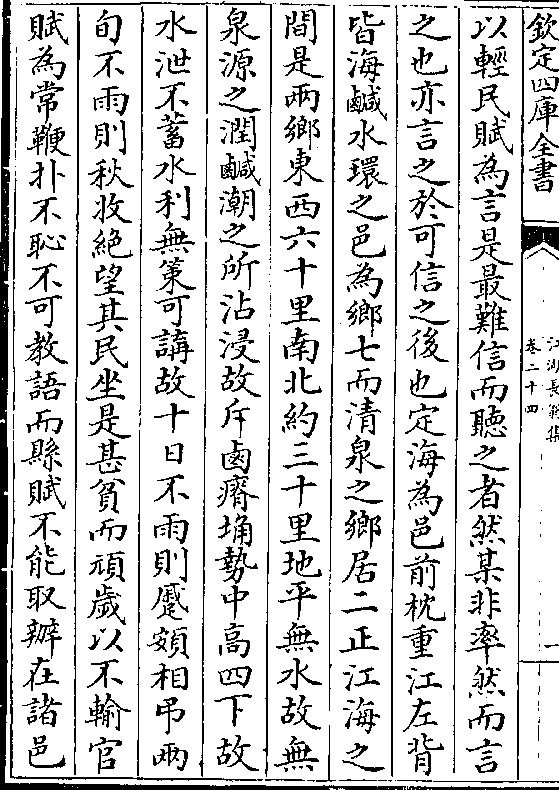 欽定四庫全書
江湖長翁集
卷二十四
一
以輕民賦為言是最難信而聽之者然某非率然而言
之也亦言之於可信之後也定海為邑前枕重江左背
皆海鹹水環之邑為鄉七而清泉之鄉居二正江海之
間是兩鄉東西六十里南北約三十里地平無水故無
泉源之潤鹹潮之所沾浸故斥鹵瘠埆勢中高四下故
水泄不蓄水利無策可講故十日不雨則蹙頞相弔兩
旬不雨則秋收絕望其民坐是甚貧而頑歲以不輸官
賦為常鞭扑不恥不可教語而縣賦不能取辦在諸邑